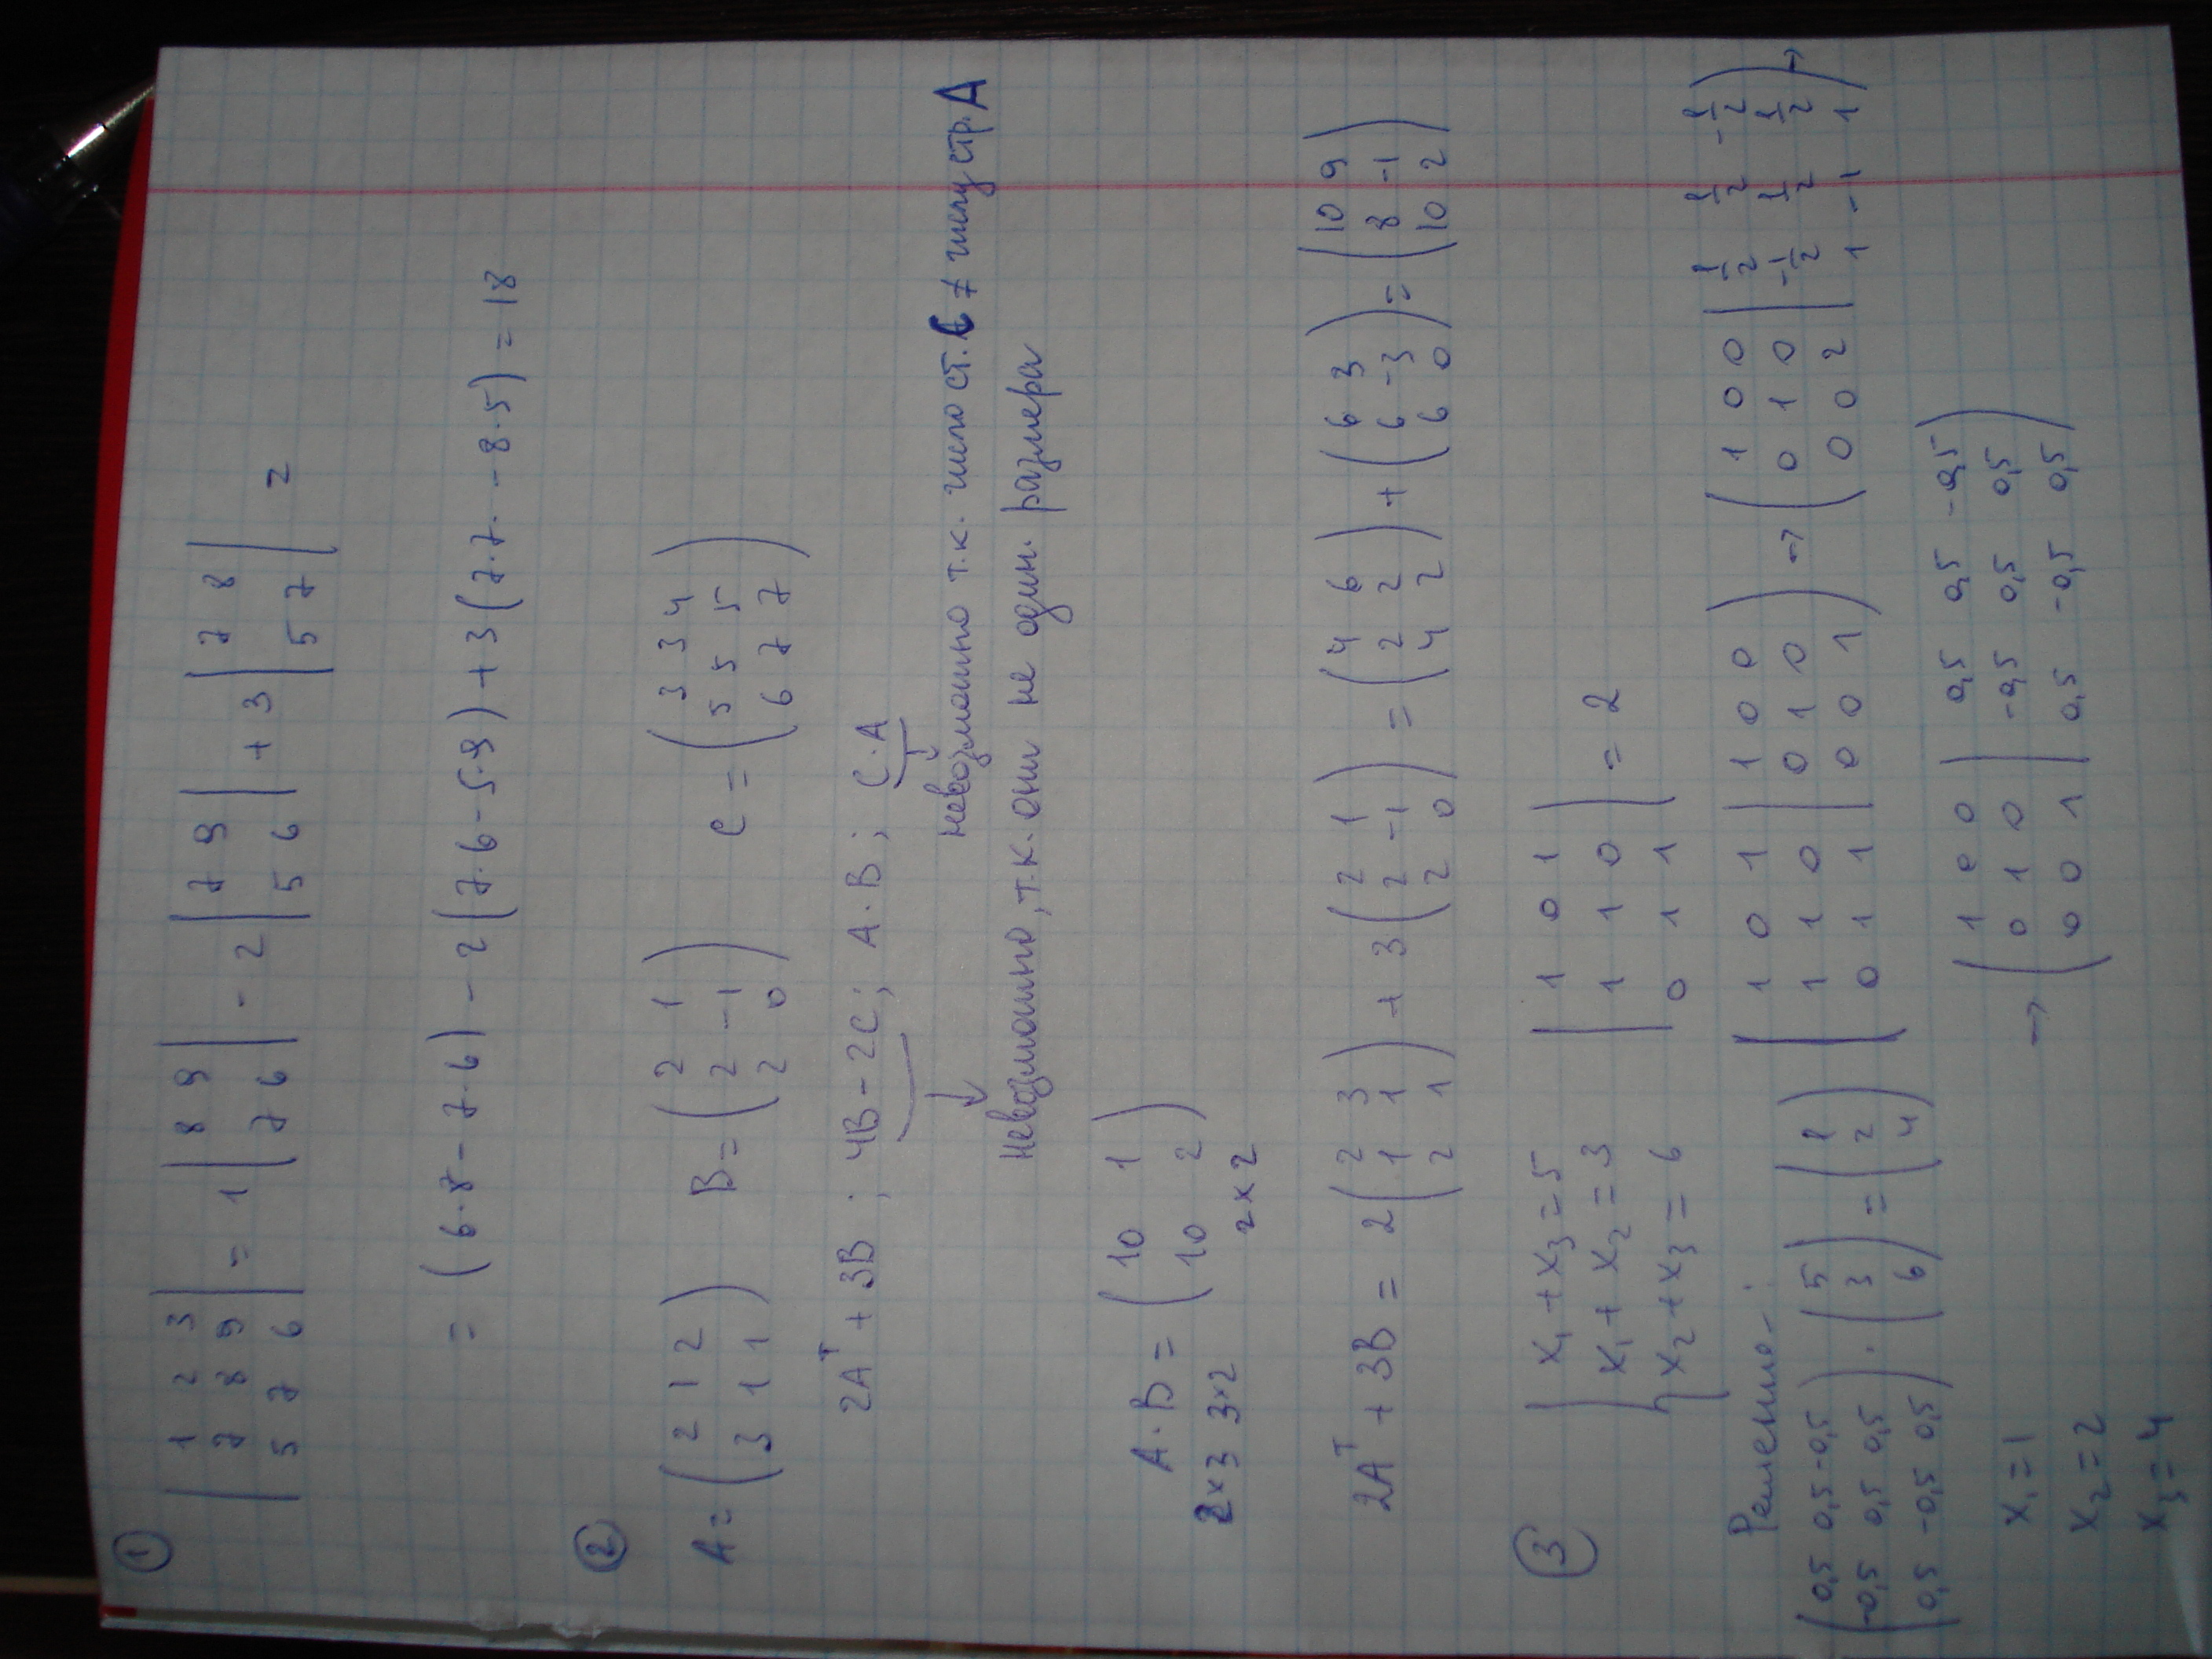 ①
| 1 2 3 |
| 7 8 9 |
| 5 7 6 |
= 1 | 8 9 |
| 7 6 |
- 2 | 7 9 |
| 5 6 |
+ 3 | 7 8 |
| 5 7 |
=
= (6·8 - 7·6) - 2(7·6 - 5·9) + 3(7·7 - 8·5) = 18
②
A = ( 2 1 2 )
( 3 1 1 )
B = ( 2 1 )
( 2 -1 )
( 2 0 )
C = ( 3 3 4 )
( 5 5 5 )
( 6 7 7 )
2Aᵀ + 3B ; 4B - 2C ; A·B ; C·A
невозможно т.к. число ст. C ≠ числу стр. A
невозможно, т.к. они не один. размера
A·B = ( 10 1 )
( 10 2 )
2×3 3×2
2×2
2Aᵀ + 3B = 2 ( 2 3 )
( 1 1 )
( 2 1 )
+ 3 ( 2 1 )
( 2 -1 )
( 2 0 )
= ( 4 6 )
( 2 2 )
( 4 2 )
+ ( 6 3 )
( 6 -3 )
( 6 0 )
= ( 10 9 )
( 8 -1 )
( 10 2 )
③
{ x₁ + x₃ = 5
x₁ + x₂ = 3
x₂ + x₃ = 6
| 1 0 1 |
| 1 1 0 |
| 0 1 1 |
= 2
Решение:
( 1 0 1 | 1 0 0 )
( 1 1 0 | 0 1 0 )
( 0 1 1 | 0 0 1 )
→ ( 1 0 0 | 1/2 1/2 -1/2 )
( 0 1 0 | -1/2 1/2 1/2 )
( 0 0 2 | 1 -1 1 )
→
→ ( 1 0 0 | 0,5 0,5 -0,5 )
( 0 1 0 | -0,5 0,5 0,5 )
( 0 0 1 | 0,5 -0,5 0,5 )
( 0,5 0,5 -0,5 )
( -0,5 0,5 0,5 )
( 0,5 -0,5 0,5 )
· ( 5 )
( 3 )
( 6 )
= ( 1 )
( 2 )
( 4 )
x₁ = 1
x₂ = 2
x₃ = 4